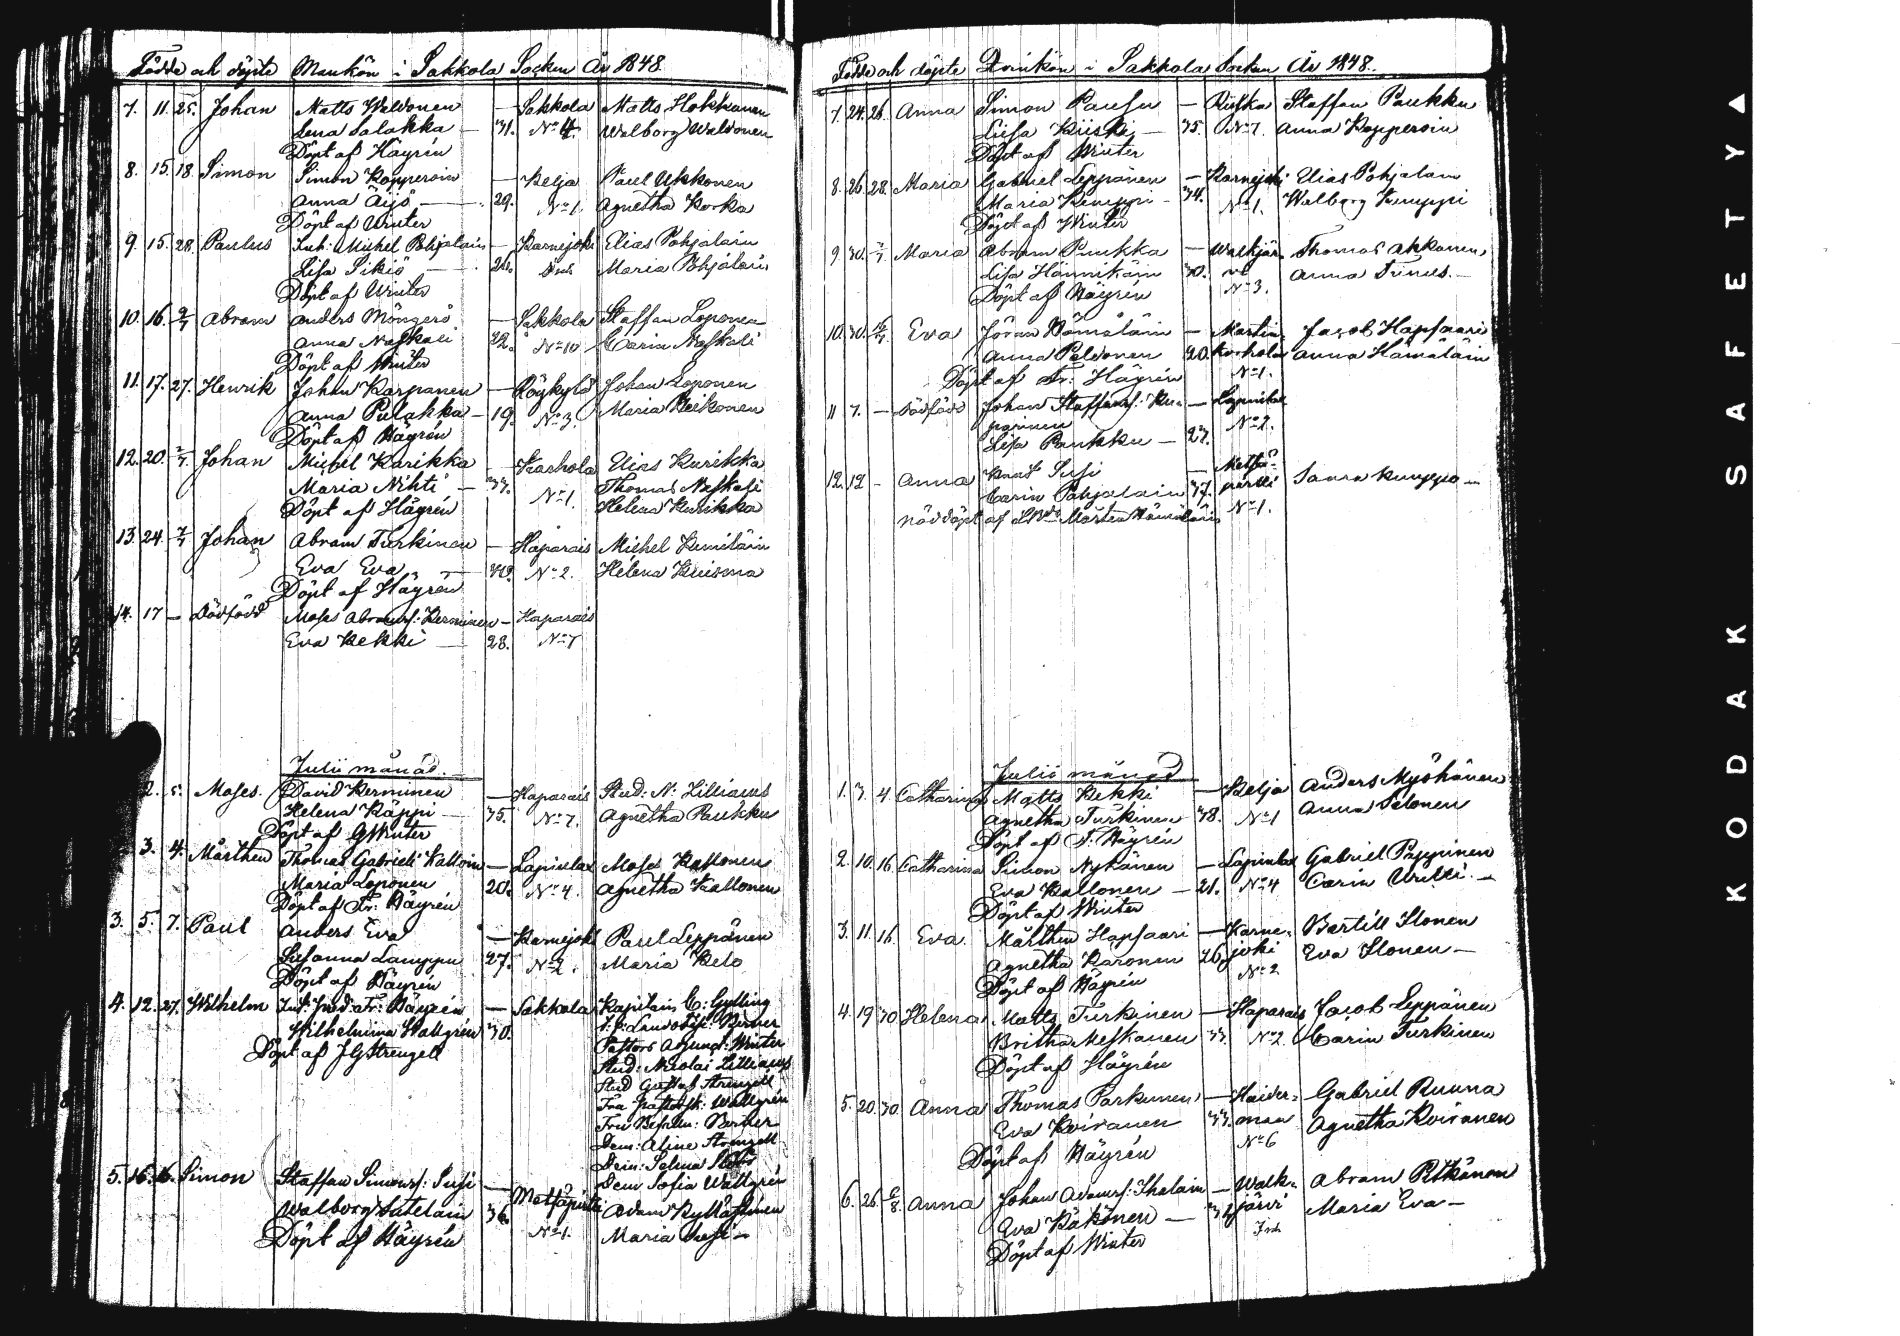 Födde och döpte Mankön i Sakkola Socken År 1848
7. 11. 25. Johan Matts Waldonen — Sakkola Matts Hokkanen
Lena Salakka — 31. No 4 Walborg Waldonen
Döpt af Häyrén
8. 15. 18. Simon Simon Kopperoin — Kelja Paul Ukkonen
Anna Äijö — 29. No 1. Agnetha Korka
Döpt af Winter
9. 15. 28. Paulus Inh: Michel Pohjalain — Karnejoki Elias Pohjalain
Lisa Sikiö — 26. Inh. Maria Pohjalain
Döpt af Winter
10. 16. 2/7 Abram Anders Möngerö — Sakkola Staffan Loponen
Anna Naskali 22. No 10 Carin Naskali
Döpt af Winter
11. 17. 27. Henrik Johan Karpanen — Röykylä Johan Loponen
Anna Pulakka — 19. No 3. Maria Reikonen
Döpt af Häyrén
12. 20. 2/7 Johan Michel Karikka — Kashola Elias Kurikka
Maria Nihti — 33. No 1. Thomas Naskali
Döpt af Häyrén Helena Kurikka
13. 24. 2/7 Johan Abram Turkinen — Haparais Michel Kemiläin
Eva Eva — 40. No 2. Helena Kuisma
Döpt af Häyrén
14. 17 — Dödfödd Moses Abramsf: Kerminen — Haparais
Eva Kekki — 28. No 7
Julii månad.
2. 5. Moses David Kerminen — Haparais Stud: N: Lillianus
Helena Käppi — 35. No 7. Agnetha Paukku
Döpt af G Winter
3. 4. Mårthen Thomas Gabrielss Kalloin — Lapinlax Moses Kallonen
Maria Loponen 20. No 4. Agnetha Kallonen
Döpt af Fr: Häyrén
3. 5. 7. Paul Anders Eva — Karnejoki Paul Leppänen
Susanna Lamppu 27. No 2. Maria Kelo
Döpt af Häyrén
4. 12. 27. Wilhelm Fr: Häyrén — Sakkola Kapitain C: Gylling
Wilhelmina Wallgrén 30. Berner
Döpt af J G Strengell Pastors Adjunct: Winter
Stud: Nicolai Lillianus
Stud Gustaf Strengell
Fru Wallgrén
Fru Berner
Dem: Aline Strengell
Dem: Selma
Dem Sofia Wallgrén
5. 16. 16. Simon Staffan Simonsf: Susi —
Walborg Sutelain 36. Metsäpirtti Adam Kyllästinen
Döpt af Häyrén No 1. Maria Susi —
Födde och döpte Qvinkön i Sakkola Socken År 1848.
7. 24. 26. Anna Simon Pausu — Riiska Staffan Paukku
Liisa Kiiski — 35. No 7. Anna Kopperoin
Döpt af Winter
8. 26. 28. Maria Gabriel Leppänen — Karnejoki Elias Pohjalain
Maria Kemppi — 34. No 1. Walborg Kemppi
Döpt af Winter
9. 30. 2/7 Maria Abram Puukka — Walkjär- Thomas Akkanen
Lisa Hännikäin 30. vi Anna Trinus. —
Döpt af Häyrén No 3.
10. 30. 16/7 Eva Jöran Hämäläin — Martin- Jacob Hapsaari
Anna Paldonen 20. korhola Anna Hämäläin
Döpt af Fr: Häyrén No 1.
11 7. — Dödfödd Johan Staffansf: Ku- — Lapinlax
parinen No 2.
Lisa Paukku — 27.
12. 12 — Anna Knut Susi — Metsä- Saara Kemppo —
Carin Pohjalain 37. pirtti
nöddöpt af Mårten Hämäläin No 1.
Julii månad
1. 3. 4. Catharina Matts Kekki — Kelja Anders Myöhänen
Agnetha Turkinen 38. No 1 Anna Pelonen
Döpt af F. Häyrén
2. 10. 16. Catharina Simon Nykänen — Lapinlax Gabriel Pappinen
Eva Kallonen — 21. No 4 Carin —
Döpt af Winter
3. 11. 16. Eva Mårthen Hapsaari — Karne- Bertill Ilonen
Agnetha Karonen 26 joki Eva Ilonen —
Döpt af Häyrén No 2
4. 19 30 Helena Matts Turkinen — Haparais Jacob Leppänen
Britha Meskanen 33. No 2 Carin Turkinen
Döpt af Häyrén
5. 20. 30. Anna Thomas Parkunen — Haider- Gabriel Ruuna
Eva Koiranen 33. man Agnetha Koiranen
Döpt af Häyrén No 6
6. 26 6/8. Anna Johan Adamsf: Ihalain — Walk- Abram Pitkänen
Eva Käkönen — järvi Maria Eva —
Döpt af Winter Inh.
KODAK SAFETY ▲